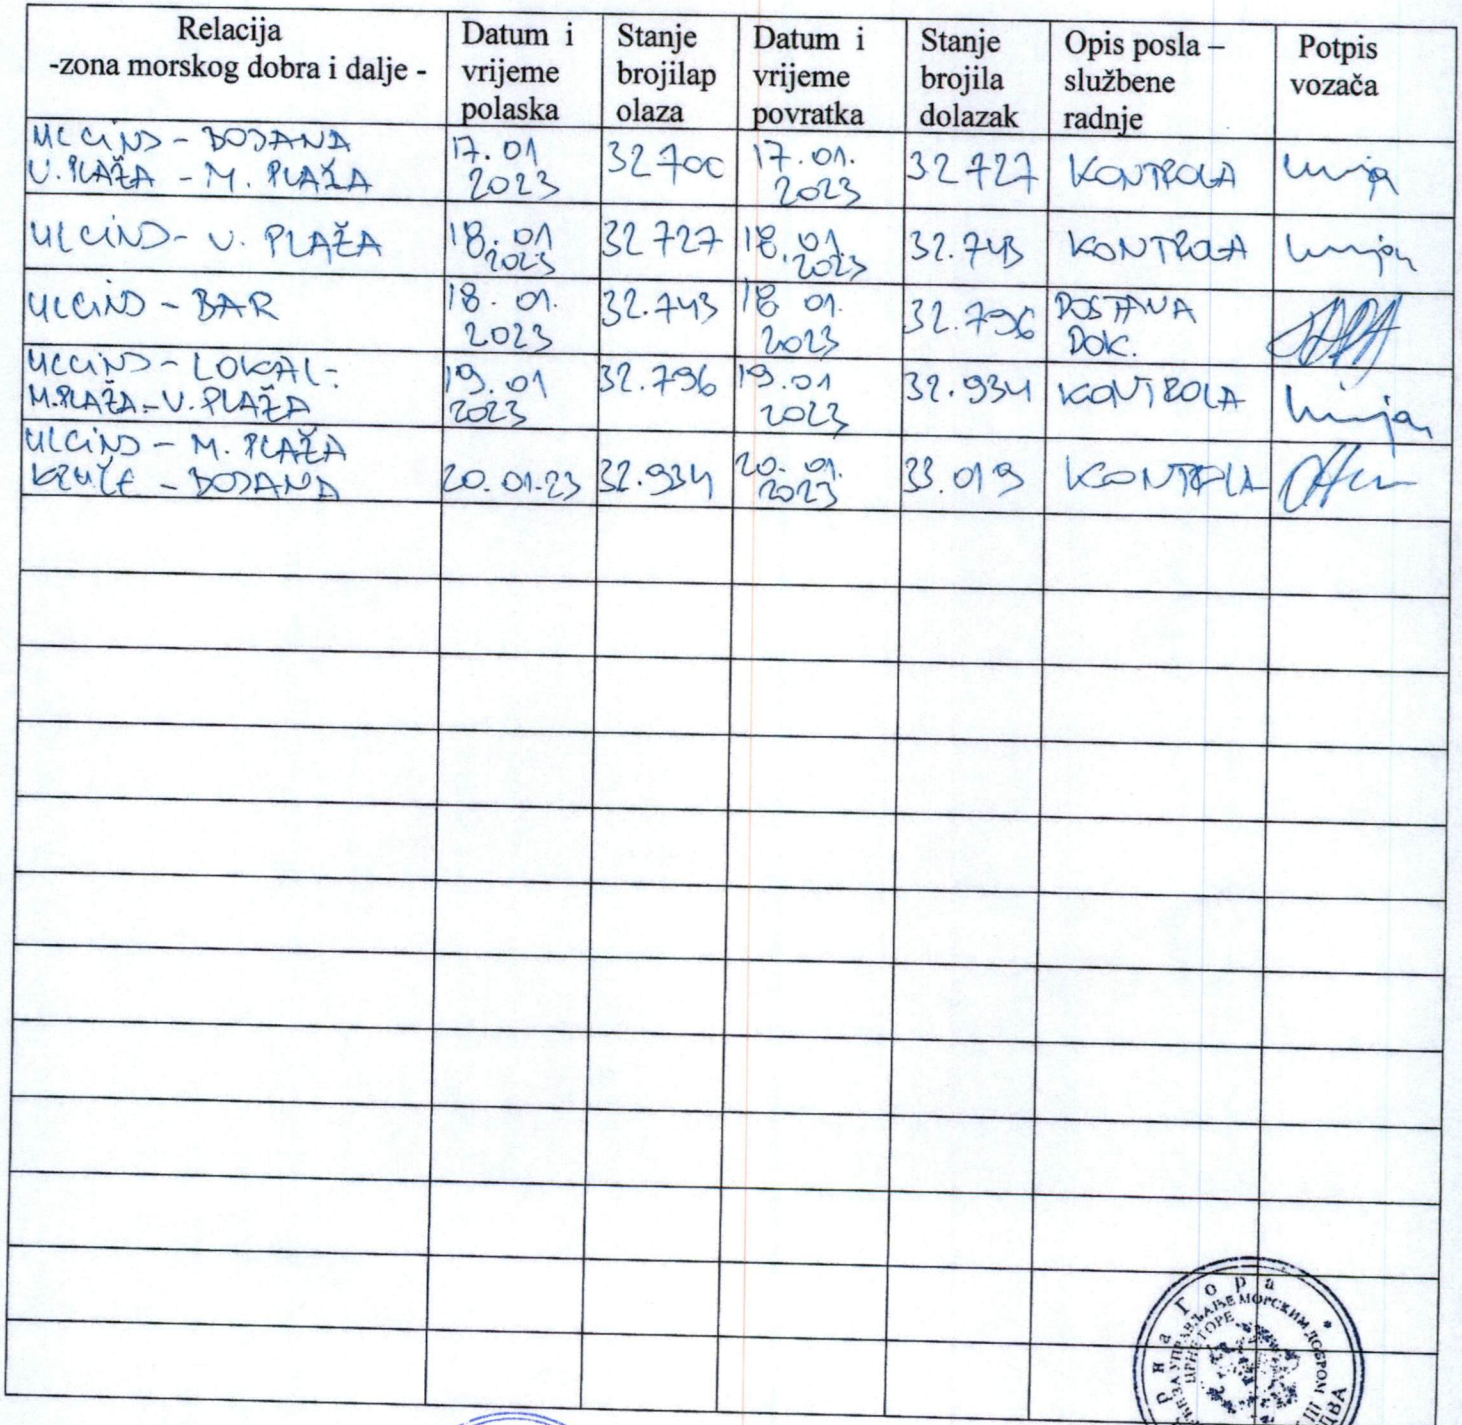 Relacija
-zona morskog dobra i dalje -
Datum i
vrijeme
polaska
Stanje
brojilap
olaza
Datum i
vrijeme
povratka
Stanje
brojila
dolazak
Opis posla –
službene
radnje
Potpis
vozača
ULCINJ - BOJANA
V. PLAŽA - M. PLAŽA
17.01
2023
32700
17.01.
2023
32727
KONTROLA
ULCINJ - V. PLAŽA
18.01
2023
32727
18.01
2023
32.743
KONTROLA
ULCINJ - BAR
18.01.
2023
32.743
18 01.
2023
32.796
DOSTAVA
DOK.
ULCINJ - LOKAL -
M.PLAŽA - V. PLAŽA
19.01
2023
32.796
19.01
2023
32.934
KONTROLA
ULCINJ - M. PLAŽA
KRUČE - BOJANA
20.01.23
32.934
20.01.
2023
33.019
KONTROLA
рна Гора
ЗА УПРАВЉАЊЕ МОРСКИМ ДОБРОМ
ЦРНЕ ГОРЕ
III